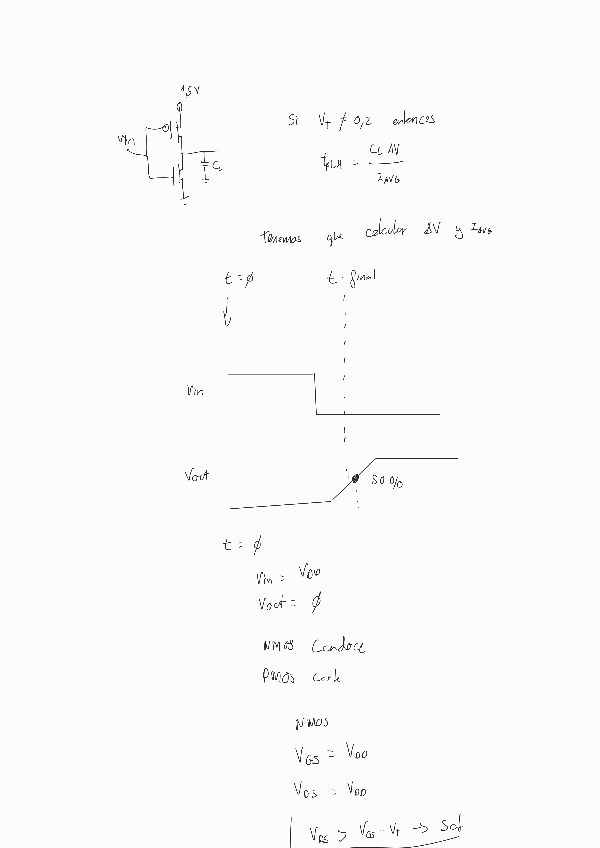 +5V
Vin
CL
Si VT ≠ 0,2 entonces
tPLH = CL ΔV / IAVG
tenemos que calcular ΔV y IAVG
t = ϕ
t = final
Vin
Vout
50 %
t = ϕ
Vin = VDD
Vout = ϕ
NMOS Conduce
PMOS corte
NMOS
VGS = VDD
VDS = VDD
VDS > VGS - VT → Sat